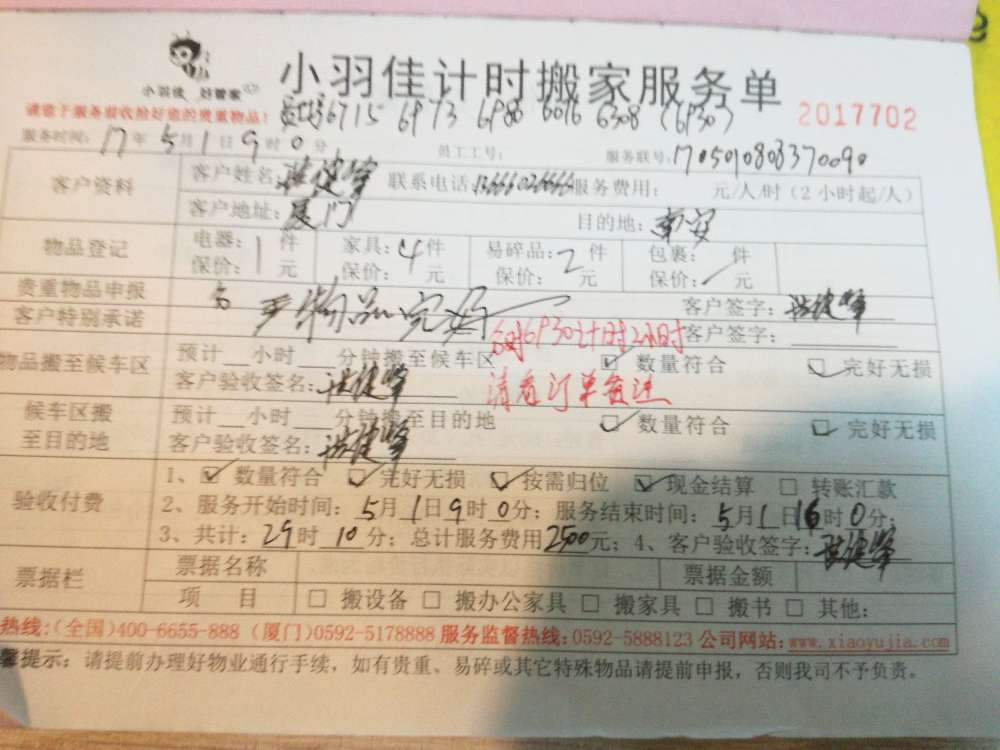 小羽佳计时搬家服务单
小羽佳 好管家
请您于服务前收拾好您的贵重物品!
6715 6973 6980 6016 6308 (6930)
2017702
服务时间: 17年5月1日9时0分 员工工号: 服务联号: 170501080370090
客户资料
客户姓名: 联系电话: 服务费用: 元/人/时 (2小时起/人)
客户地址: 厦门 目的地: 南安
物品登记
电器: 1 件 家具: 4 件 易碎品: 2 件 包裹: 件
保价: 元 保价: 元 保价: 元 保价: 元
贵重物品申报 客户签字:
物品完好
客户特别承诺 客户签字:
6930计时2小时
物品搬至候车区
预计__小时__分钟搬至候车区 ☑ 数量符合 ☑ 完好无损
客户验收签名:
请看订单备注
候车区搬至目的地
预计__小时__分钟搬至目的地 ☑ 数量符合 ☑ 完好无损
客户验收签名:
验收付费
1、☑ 数量符合 ☑ 完好无损 ☑ 按需归位 ☑ 现金结算 □ 转账汇款
2、服务开始时间: 5月1日9时0分; 服务结束时间: 5月1日16时0分;
3、共计: 29时10分; 总计服务费用2500元; 4、客户验收签字:
票据栏
票据名称 票据金额
项 目 □ 搬设备 □ 搬办公家具 □ 搬家具 □ 搬书 □ 其他:
热线:(全国)400-6655-888 (厦门)0592-5178888 服务监督热线:0592-5888123 公司网站:www.xiaoyujia.com
馨提示: 请提前办理好物业通行手续，如有贵重、易碎或其它特殊物品请提前申报，否则我司不予负责。